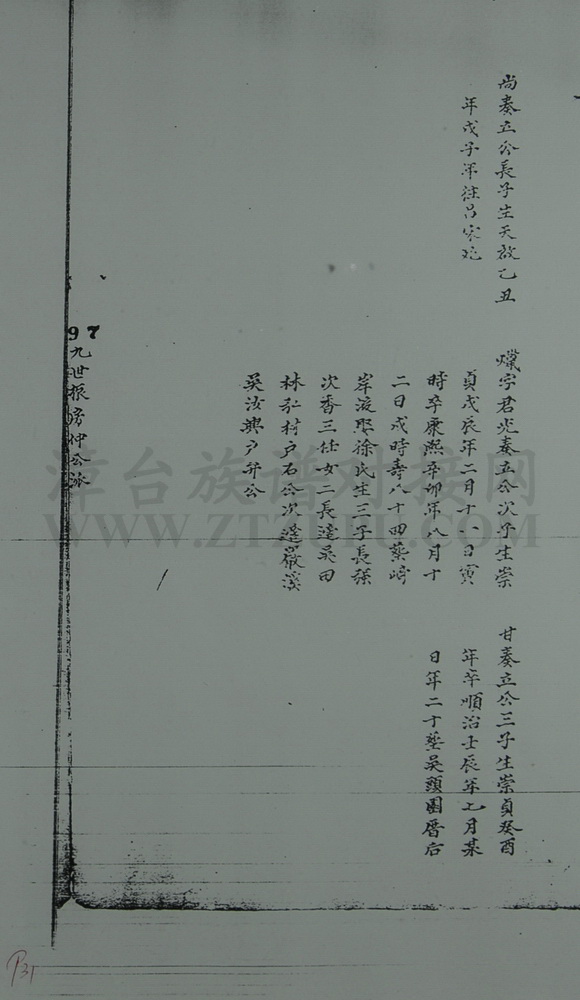 尚奏立公長子生天啟乙丑
年戊子年往呂宋
字君光奏立公次子生崇
貞戊辰年二月十八日寅
時卒康熙辛卯年八月十
二日戌時壽八十四葬崎
岸後娶徐氏生三子長蔭
次香三仕女二長適吳田
林弘村户石公次適嚴溪
吳汝興户弁公
甘奏立公三子生崇貞癸酉
年卒順治壬辰年七月某
日年二十塟吳頭園厝后
97
九世振房仲公派
P31
漳台族谱对接网
WWW.ZTZUPU.COM